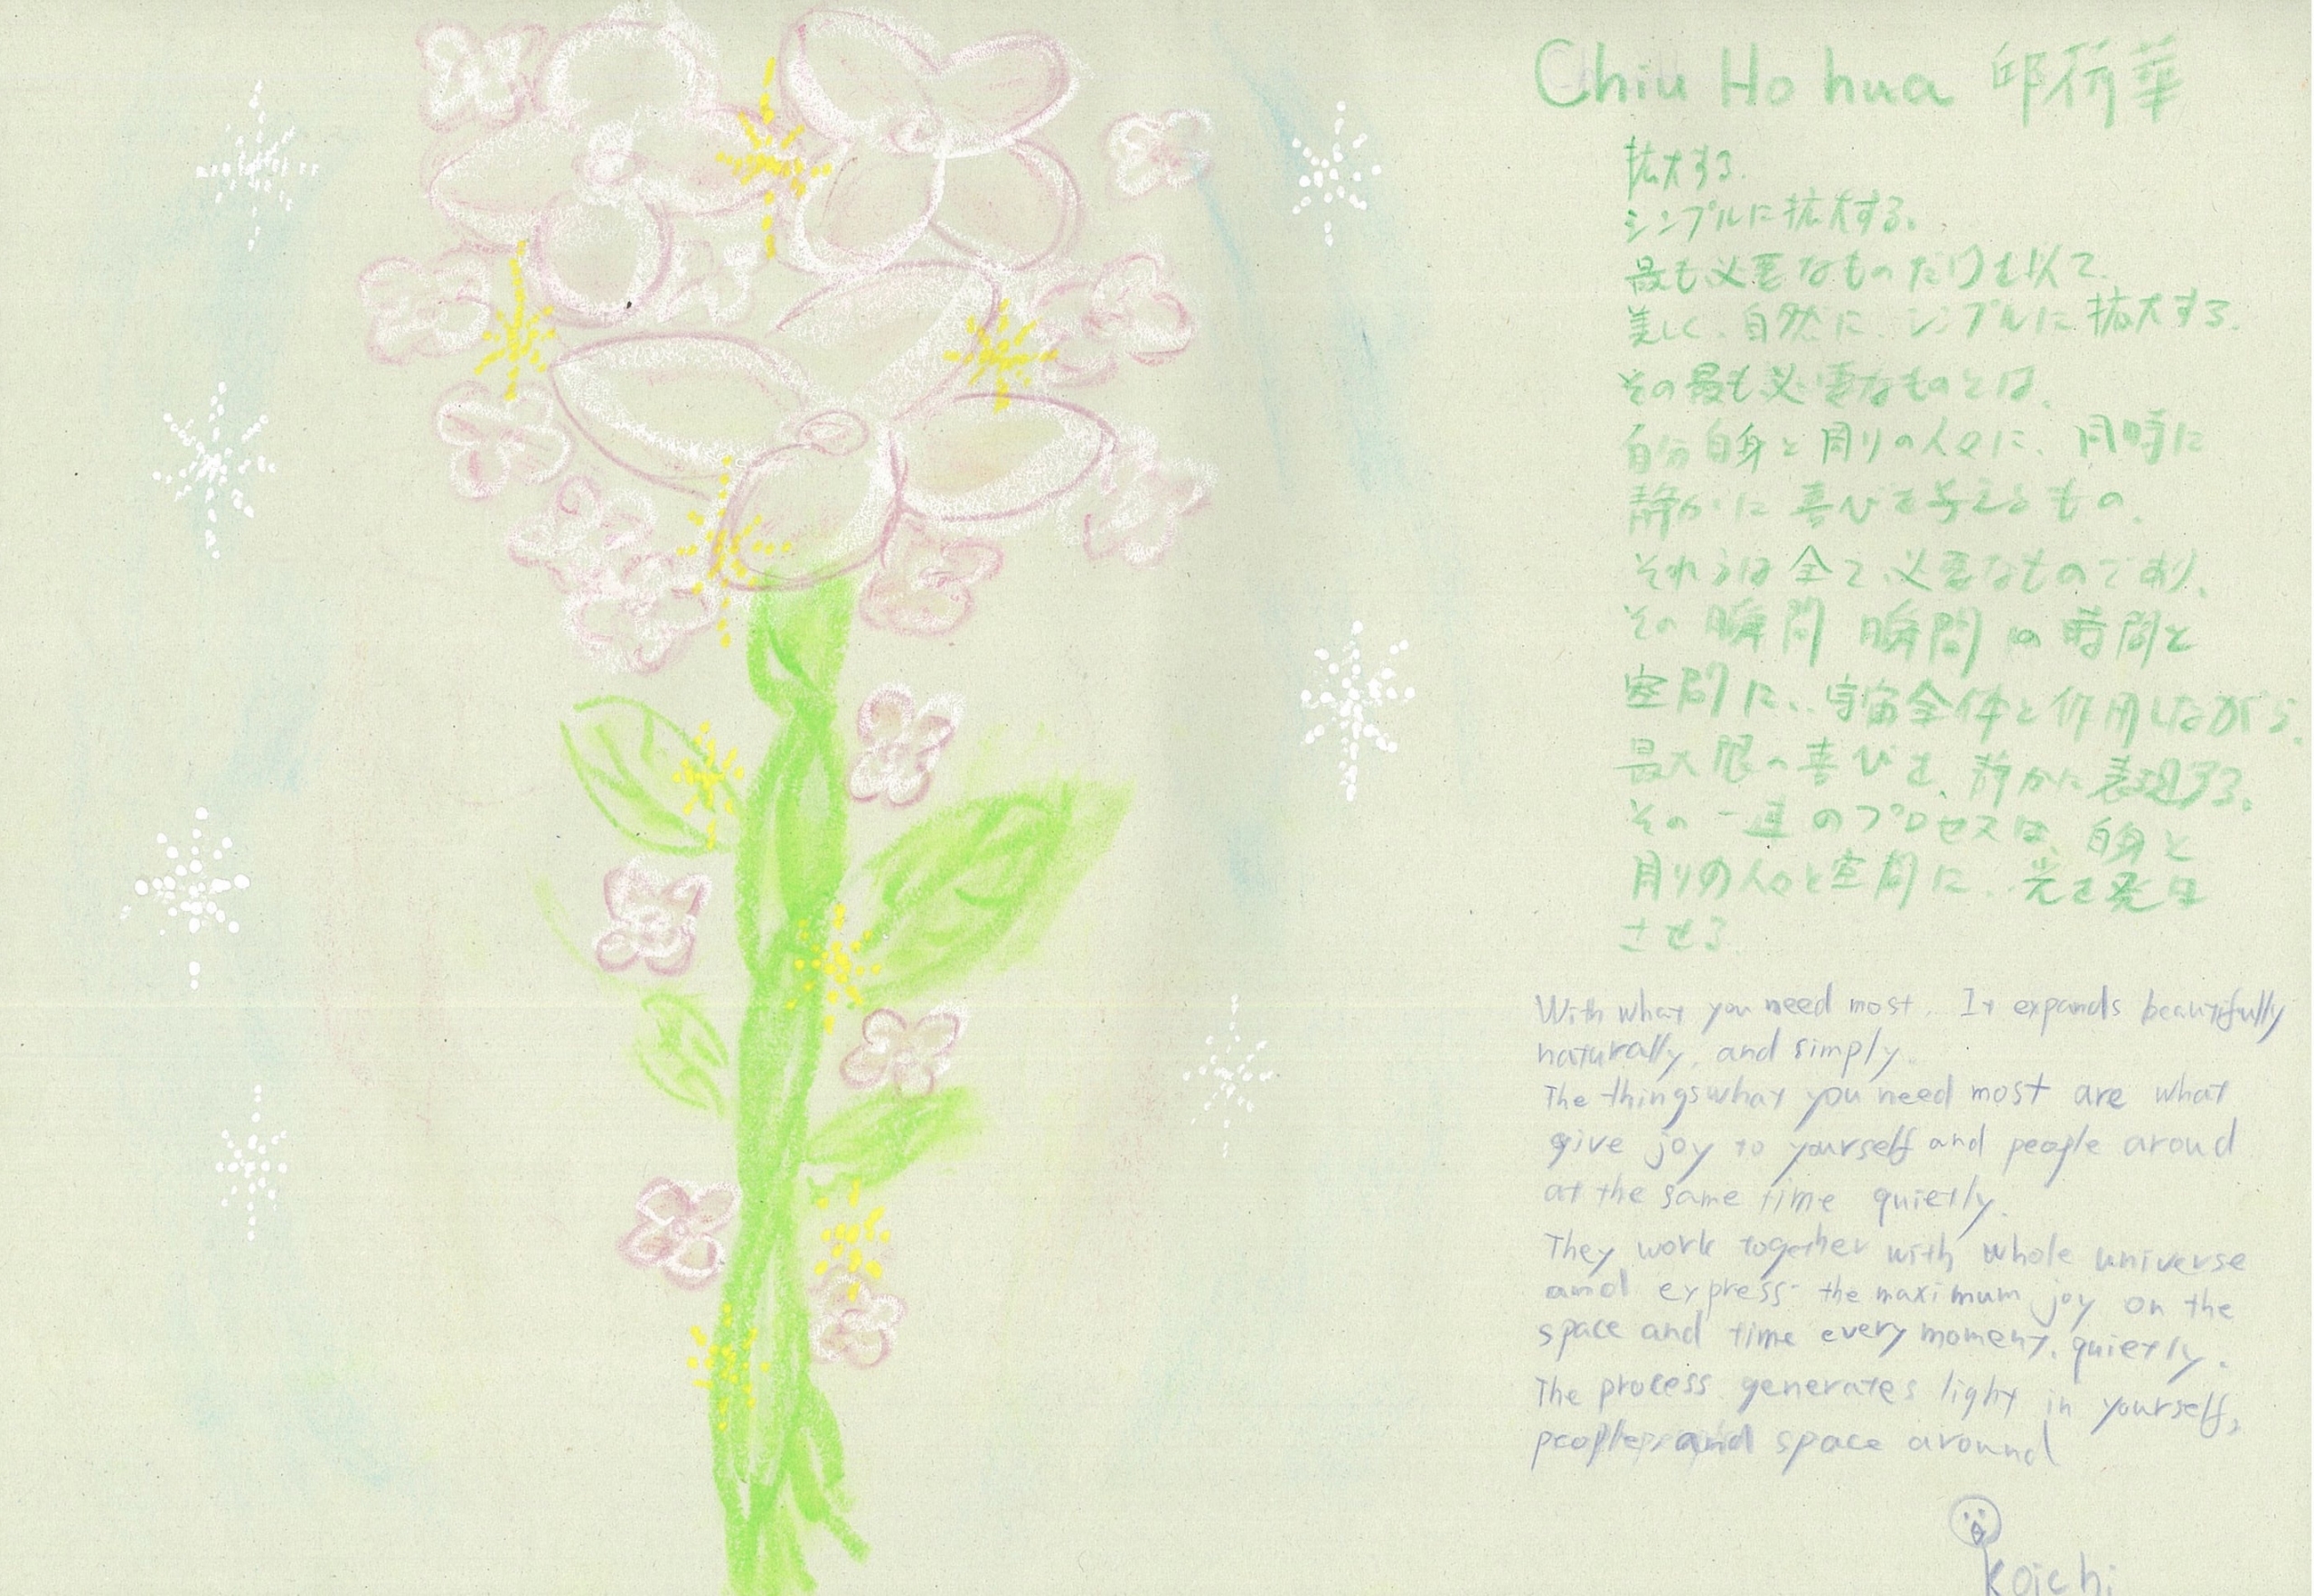 Chiu Ho hua 邱荷華
拡大する.
シンプルに拡大する。
最も必要なものだけを以て.
美しく、自然に、シンプルに拡大する.
その最も必要なものとは、
自分自身と周りの人々に、同時に
静かに喜びを与えるもの、
それらは全て必要なものであり、
その瞬間瞬間の時間と
空間に、宇宙全体と作用しながら、
最大限の喜びを、静かに表現する。
その一連のプロセスは、自身と
周りの人々と空間に、光を発生
させる
With what you need most. It expands beautifully
naturally, and simply.
The things what you need most are what
give joy to yourself and people aroud
at the same time quietly.
They work together with whole universe
and express the maximum joy on the
space and time every moment, quietly.
The process generates light in yourself,
people, and space around
Koichi